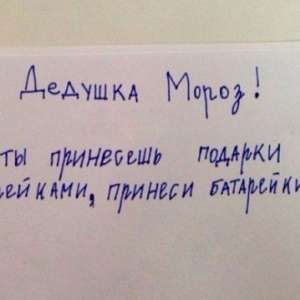 Дедушка Мороз!
ты принесешь подарки
ейками, принеси батарейки